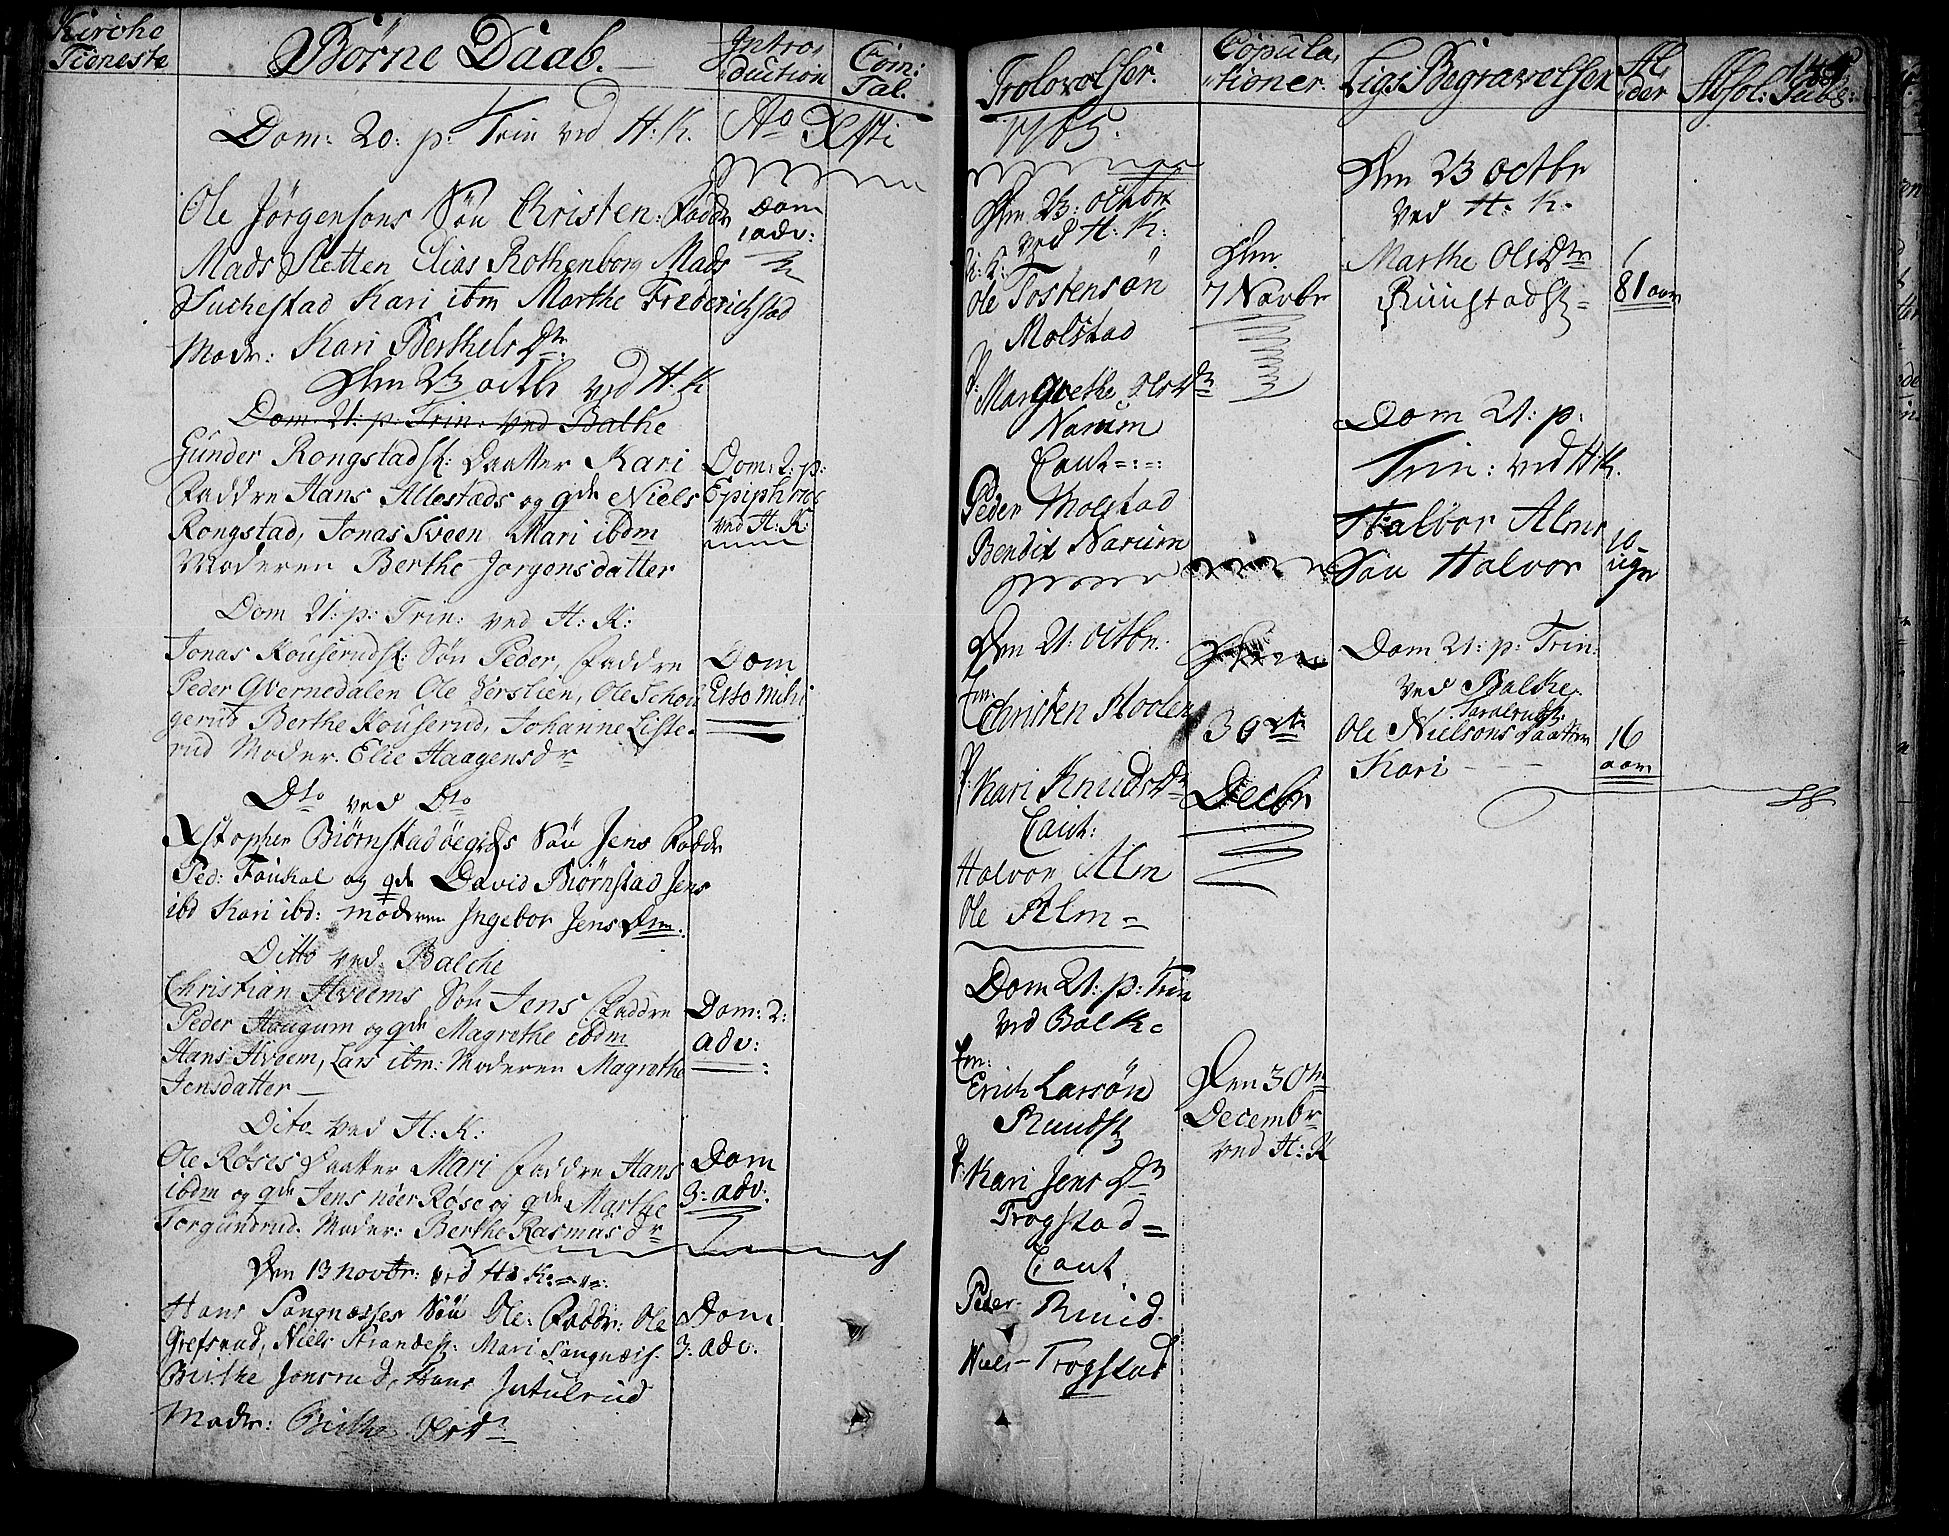 Kirche
Tieneste
Børne Daab.
Intro-
duction
Com:
Tal.
Dom: 20: p: Trin ved H: K.
Ao Xsti
Ole Jørgensøns Søn Christen: Faddr
Mads Sletten Elias Rothenborg Mads
Kari ibm Marthe Frederichstad
Modr: Kari Berthels Dtr
Dom
1 adv:
Dn 23 octbr ved H. K
Dom. 21: p: Trin. ved Balke
Gunder Rongstad Daatter Kari
Faddre Hans Allestads og qde Niels
Rongstad, Jonas Sveen Mari ibdm
Moderen Berthe Jorgensdatter
Dom: 2: p:
Epiph
ved H: K:
Dom 21: p: Trin: ved H: K:
Jonas Kouserud Søn Peder, Faddre
Peder Qvernedalen Ole Verslien, Ole Schou
gerud Berthe Kouserud, Johanne Liste-
rud Moder. Elie Haagensdr
Dom
Esto mihi
Dto ved Dto
Xstopher Biørnstadøegds Søn Jens Faddr
Ped: Foukal og qde David Biørnstad Jens
ibd Kari ibd: moderen Ingebor Jens Dtr.
Ditto ved Balche
Christian Hveems Søn Jens Faddre
Peder Haugum og qde Magrethe ibdm
Hans Hveem, Lars ibm: Moderen Magrethe
Jensdatter
Dom: 2:
adv:
Dito ved H: K:
Ole Røses Daatter Mari Faddre Hans
ibdm og qde Jens nier Røse og qde Marthe
Torgundrud. Moder: Berthe Rasmusdr
Dom
3: adv:
Den 13 novbr: ved H: K:
Hans Sangnæsses Søn Ole: Faddr: Ole
Grefsrud, Niels Strande Mari Sangnæss.
Birthe Jonsrud, Hans
Modr: Birthe Olsd
Dom
3. adv.
Trolovelser.
Copula-
tioner.
Ligs Begravelser
Al-
der
Absol: Publ:
1765.
Dn 23: octbr
ved H: K:
Ole Tostensøn
Molstad
P: Margrethe Olsdr
Narum
Caut
Peder Molstad
Bendix Narum
Dn
7 Novbr
Den 21: octbr.
Em:
Christen
P: Kari Knudsdr
Caut:
Halvor Alm
Ole Alm
30
Decbr
Dom 21: p: Trin
ved Balk
Em:
Erich Larsøn
Ruud
P: Kari Jens Dtr
Trogstad
Caut
Peder Ruud
Niels Trogstad
Den 30te
Decembr
ved H: K
Dn 23 octbr
ved H: K:
Marthe Ols Dtr
Ruustad
81 aar
Dom 21: p:
Trin: ved H: K.
Halvor Alms
Søn Halvor
10
uger
Dom 21: p: Trin
ved Balke
Ole Nielsøns Daatter
Kari
16
aar